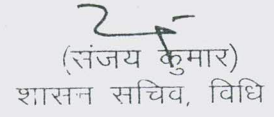 (संजय कुमार)
शासन सचिव, विधि